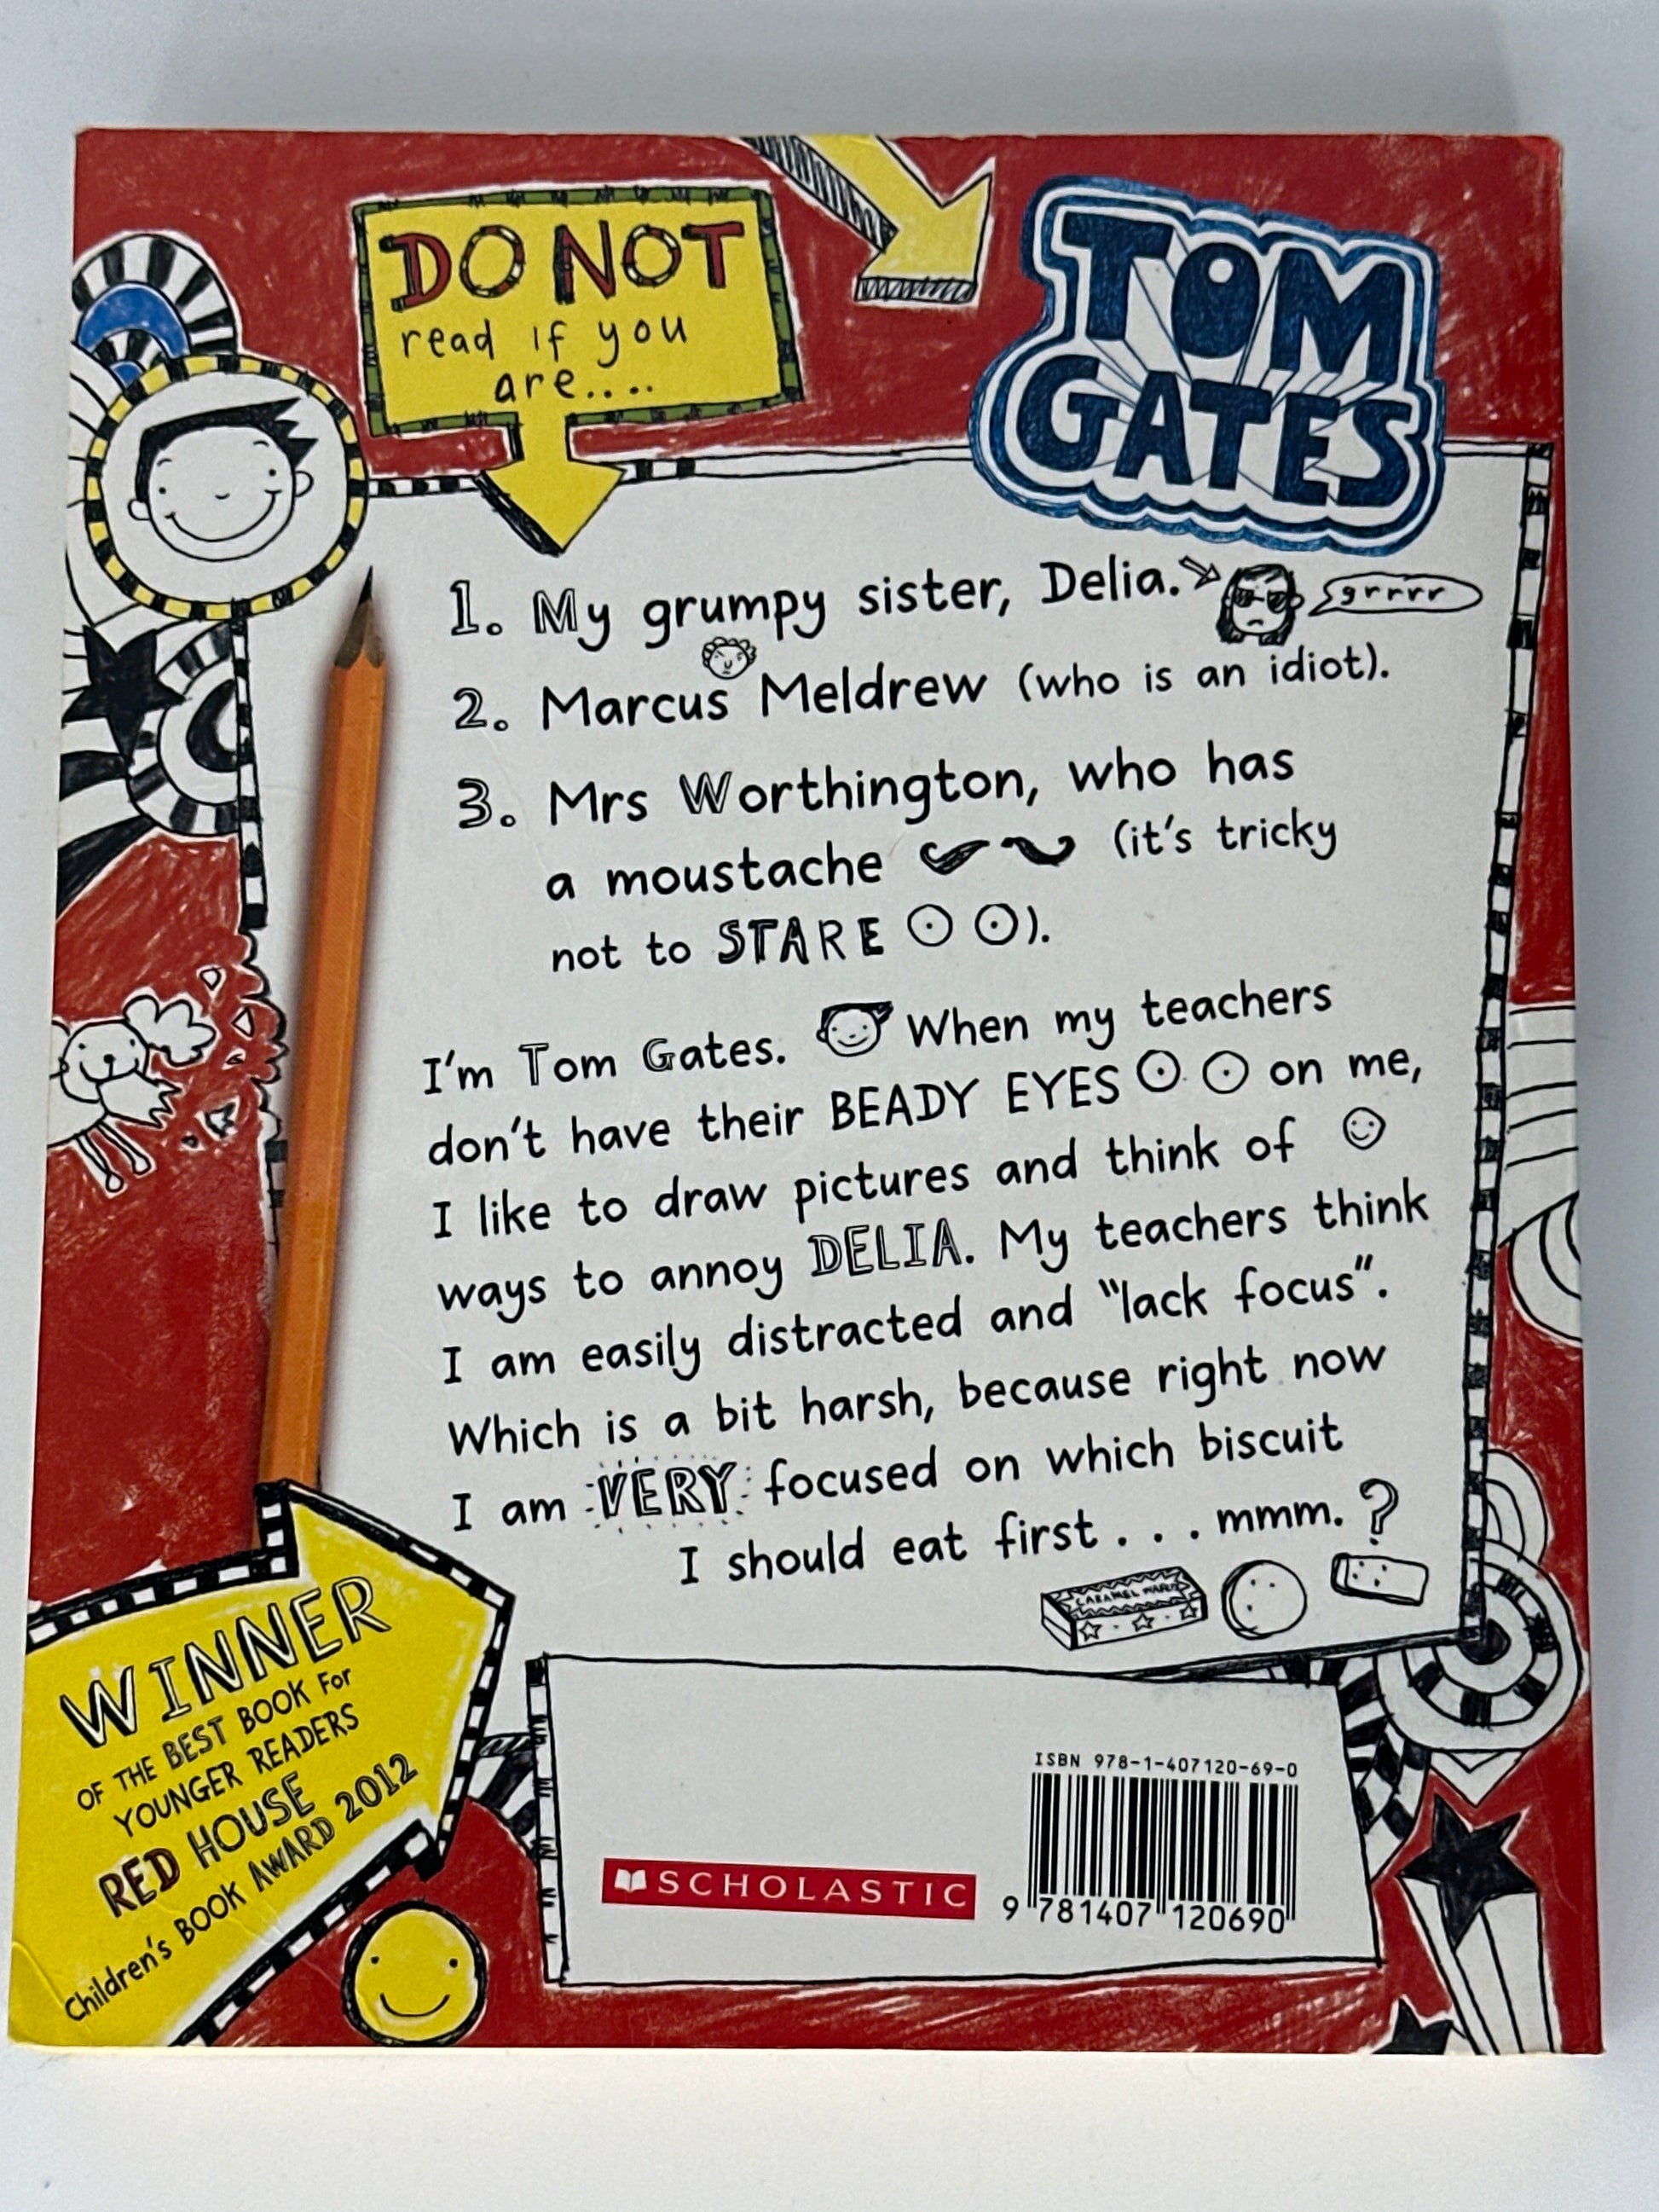 DO NOT
read if you
are....
TOM
GATES
1. My grumpy sister, Delia.
grrrr
2. Marcus Meldrew (who is an idiot).
3. Mrs Worthington, who has
a moustache (it's tricky
not to STARE ).
I'm Tom Gates. When my teachers
don't have their BEADY EYES on me,
I like to draw pictures and think of
ways to annoy DELIA. My teachers think
I am easily distracted and "lack focus".
Which is a bit harsh, because right now
I am VERY focused on which biscuit
I should eat first . . . mmm. ?
CARAMEL WAFER
WINNER
OF THE BEST BOOK For
YOUNGER READERS
RED HOUSE
Children's BOOK AWARD 2012
ISBN 978-1-407120-69-0
SCHOLASTIC
9 781407 120690